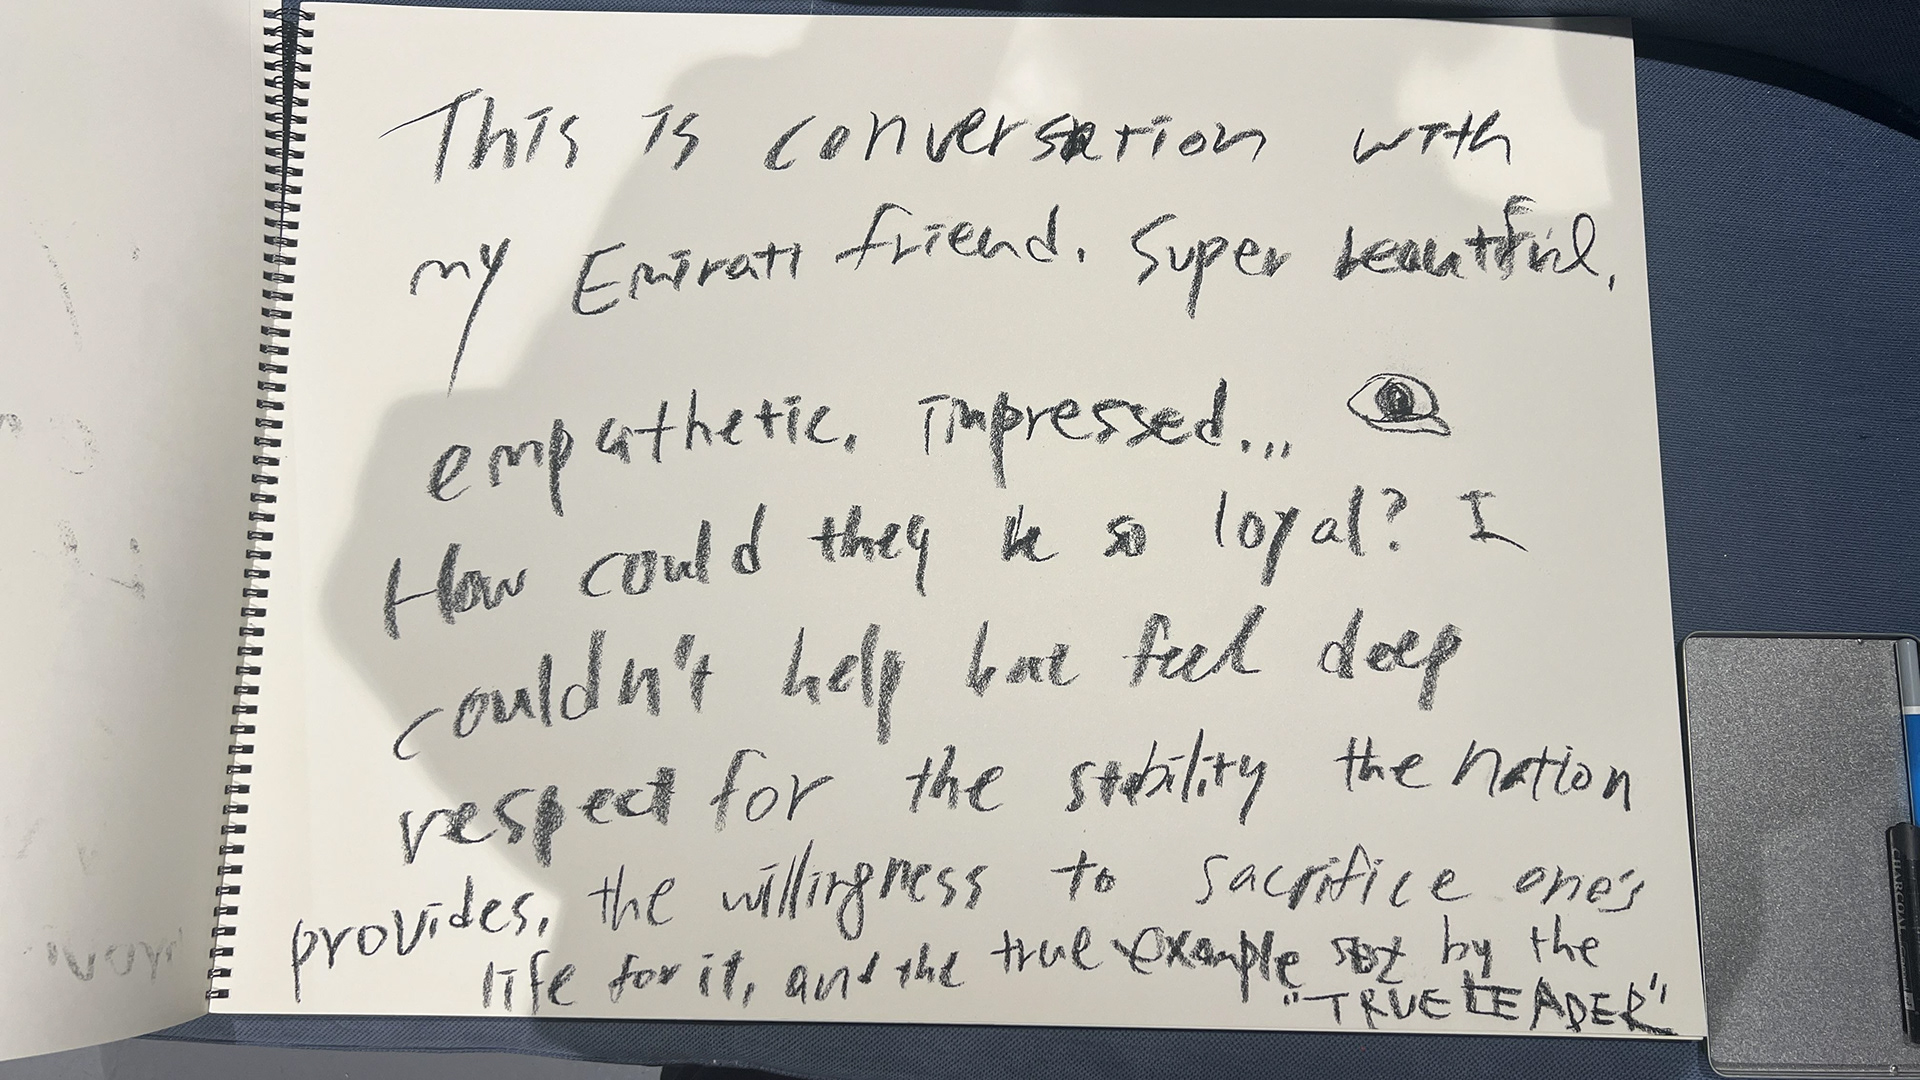 This is conversation with
my Emirati friend. Super beautiful,
empathetic. impressed...
How could they be so loyal? I
couldn't help but feel deep
respect for the stability the nation
provides, the willingness to sacrifice one's
life for it, and the true example set by the
"TRUE LEADER"
CHARCOAL